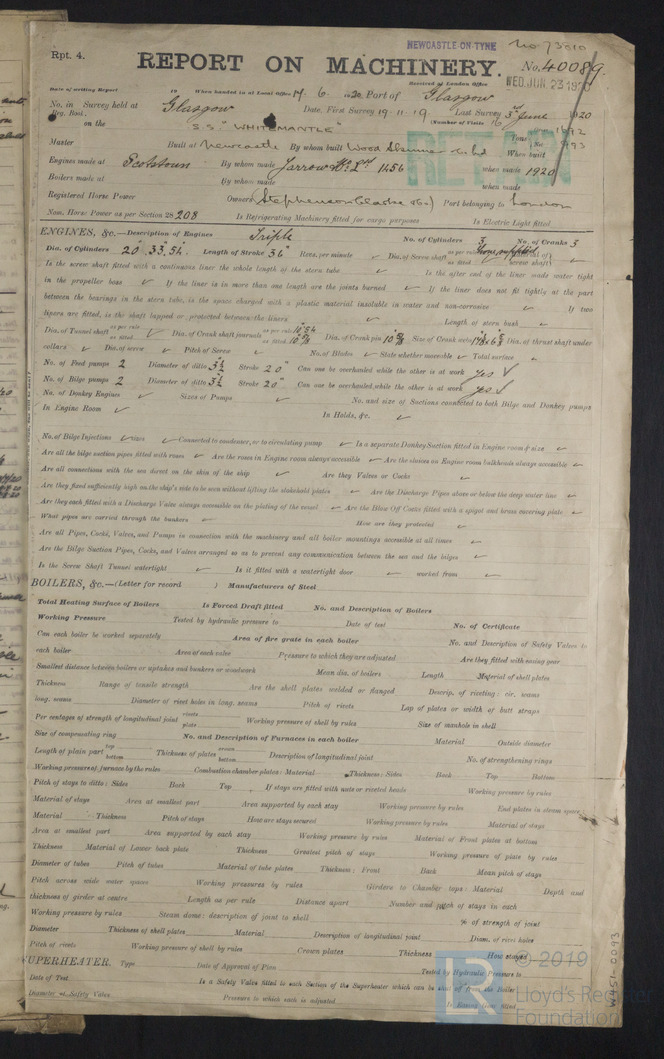 Rpt. 4.
NEWCASTLE-ON-TYNE No 73010
REPORT ON MACHINERY. No. 40089.
Received at London Office WED. JUN. 23 19
Date of writing Report 19 When handed in at Local Office 17. 6. 1920 Port of Glasgow
No. in Reg. Book. Survey held at Glasgow Date, First Survey 19.11.19. Last Survey 3rd June 1920
(Number of Visits 16
on the S.S. "WHITEMANTLE"
RETAIN
Master Built at Newcastle By whom built Wood Skinner & Co Ltd When built
Engines made at Scotstoun By whom made Yarrow & Co Ld 1456 when made 1920
Boilers made at By whom made when made
Registered Horse Power Owners (Stephenson Clarke & Co.) Port belonging to London
Nom. Horse Power as per Section 28 208 Is Refrigerating Machinery fitted for cargo purposes Is Electric Light fitted
ENGINES, &c.—Description of Engines Triple No. of Cylinders 3 No. of Cranks 3
Dia. of Cylinders 20", 33", 54" Length of Stroke 36" Revs. per minute ✓ Dia. of Screw shaft as per rule as fitted Material of screw shaft
Is the screw shaft fitted with a continuous liner the whole length of the stern tube ✓ Is the after end of the liner made water tight
in the propeller boss ✓ If the liner is in more than one length are the joints burned ✓ If the liner does not fit tightly at the part
between the bearings in the stern tube, is the space charged with a plastic material insoluble in water and non-corrosive ✓ If two
liners are fitted, is the shaft lapped or protected between the liners ✓ Length of stern bush ✓
Dia. of Tunnel shaft as per rule as fitted ✓ Dia. of Crank shaft journals as per rule as fitted Dia. of Crank pin Size of Crank webs Dia. of thrust shaft under
collars ✓ Dia. of screw ✓ Pitch of Screw ✓ No. of Blades ✓ State whether moveable ✓ Total surface ✓
No. of Feed pumps 2 Diameter of ditto 3½" Stroke 20" Can one be overhauled while the other is at work yes ✓
No. of Bilge pumps 2 Diameter of ditto 3½" Stroke 20" Can one be overhauled while the other is at work yes ✓
No. of Donkey Engines ✓ Sizes of Pumps ✓ No. and size of Suctions connected to both Bilge and Donkey pumps
In Engine Room ✓ In Holds, &c. ✓
No. of Bilge Injections ✓ sizes ✓ Connected to condenser, or to circulating pump ✓ Is a separate Donkey Suction fitted in Engine room & size ✓
Are all the bilge suction pipes fitted with roses ✓ Are the roses in Engine room always accessible ✓ Are the sluices on Engine room bulkheads always accessible ✓
Are all connections with the sea direct on the skin of the ship ✓ Are they Valves or Cocks ✓
Are they fixed sufficiently high on the ship's side to be seen without lifting the stokehold plates ✓ Are the Discharge Pipes above or below the deep water line ✓
Are they each fitted with a Discharge Valve always accessible on the plating of the vessel ✓ Are the Blow Off Cocks fitted with a spigot and brass covering plate ✓
What pipes are carried through the bunkers ✓ How are they protected ✓
Are all Pipes, Cocks, Valves, and Pumps in connection with the machinery and all boiler mountings accessible at all times ✓
Are the Bilge Suction Pipes, Cocks, and Valves arranged so as to prevent any communication between the sea and the bilges ✓
Is the Screw Shaft Tunnel watertight ✓ Is it fitted with a watertight door ✓ worked from ✓
BOILERS, &c.—(Letter for record ) Manufacturers of Steel
Total Heating Surface of Boilers Is Forced Draft fitted No. and Description of Boilers
Working Pressure Tested by hydraulic pressure to Date of test No. of Certificate
Can each boiler be worked separately Area of fire grate in each boiler No. and Description of Safety Valves to
each boiler Area of each valve Pressure to which they are adjusted Are they fitted with easing gear
Smallest distance between boilers or uptakes and bunkers or woodwork Mean dia. of boilers Length Material of shell plates
Thickness Range of tensile strength Are the shell plates welded or flanged Descrip. of riveting: cir. seams
long. seams Diameter of rivet holes in long. seams Pitch of rivets Lap of plates or width of butt straps
Per centages of strength of longitudinal joint rivets plate Working pressure of shell by rules Size of manhole in shell
Size of compensating ring No. and Description of Furnaces in each boiler Material Outside diameter
Length of plain part top bottom Thickness of plates crown bottom Description of longitudinal joint No. of strengthening rings
Working pressure of furnace by the rules Combustion chamber plates: Material Thickness: Sides Back Top Bottom
Pitch of stays to ditto: Sides Back Top If stays are fitted with nuts or riveted heads Working pressure by rules
Material of stays Area at smallest part Area supported by each stay Working pressure by rules End plates in steam space:
Material Thickness Pitch of stays How are stays secured Working pressure by rules Material of stays
Area at smallest part Area supported by each stay Working pressure by rules Material of Front plates at bottom
Thickness Material of Lower back plate Thickness Greatest pitch of stays Working pressure of plate by rules
Diameter of tubes Pitch of tubes Material of tube plates Thickness: Front Back Mean pitch of stays
Pitch across wide water spaces Working pressures by rules Girders to Chamber tops: Material Depth and
thickness of girder at centre Length as per rule Distance apart Number and pitch of stays in each
Working pressure by rules Steam dome: description of joint to shell % of strength of joint
Diameter Thickness of shell plates Material Description of longitudinal joint Diam. of rivet holes
Pitch of rivets Working pressure of shell by rules Crown plates Thickness How stayed
UPERHEATER. Type Date of Approval of Plan Tested by Hydraulic Pressure to
Date of Test Is a Safety Valve fitted to each Section of the Superheater which can be shut off from the Boiler
Diameter of Safety Valve Pressure to which each is adjusted Is Easing Gear fitted
© 2019
LR
Lloyd's Register
Foundation
W451-0093